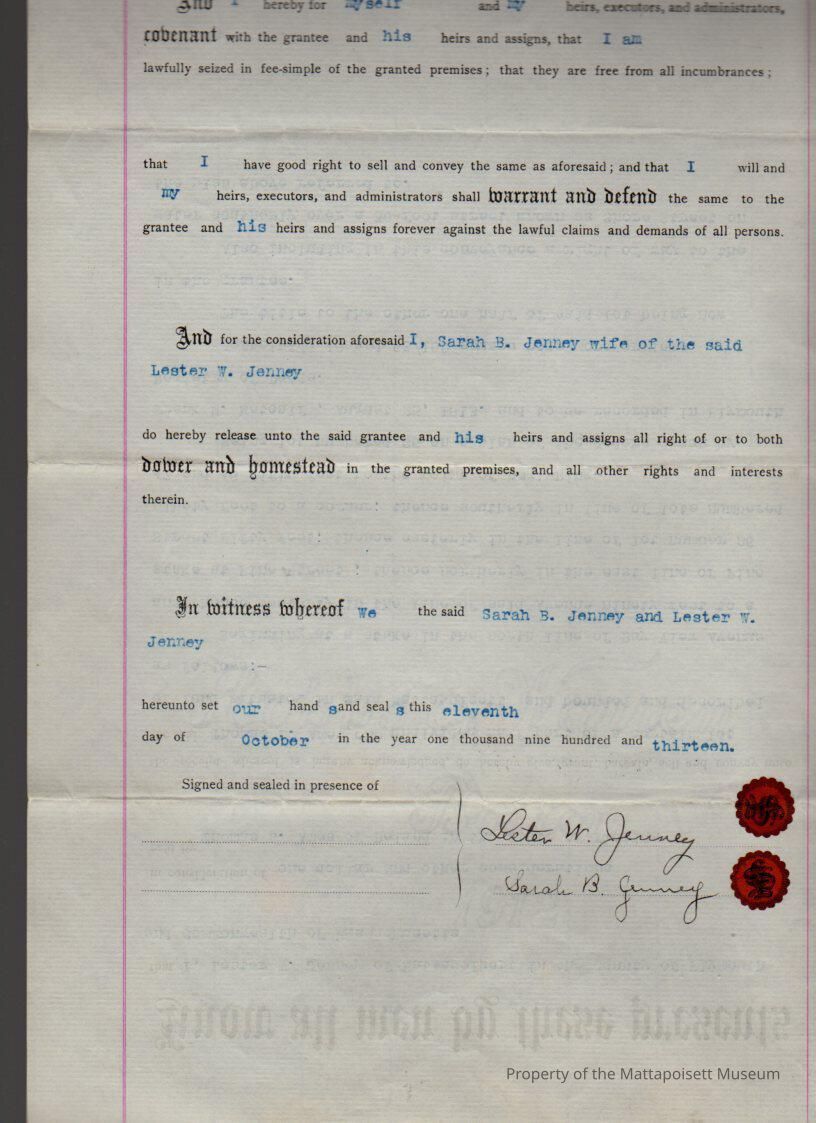 And I hereby for myself and my heirs, executors, and administrators,
covenant with the grantee and his heirs and assigns, that I am
lawfully seized in fee-simple of the granted premises; that they are free from all incumbrances;
that I have good right to sell and convey the same as aforesaid; and that I will and
my heirs, executors, and administrators shall warrant and defend the same to the
grantee and his heirs and assigns forever against the lawful claims and demands of all persons.
And for the consideration aforesaid I, Sarah B. Jenney wife of the said
Lester W. Jenney
do hereby release unto the said grantee and his heirs and assigns all right of or to both
dower and homestead in the granted premises, and all other rights and interests
therein.
In witness whereof we the said Sarah B. Jenney and Lester W.
Jenney
hereunto set our hand s and seal s this eleventh
day of October in the year one thousand nine hundred and thirteen.
Signed and sealed in presence of
Lester W. Jenney
Sarah B. Jenney
Property of the Mattapoisett Museum